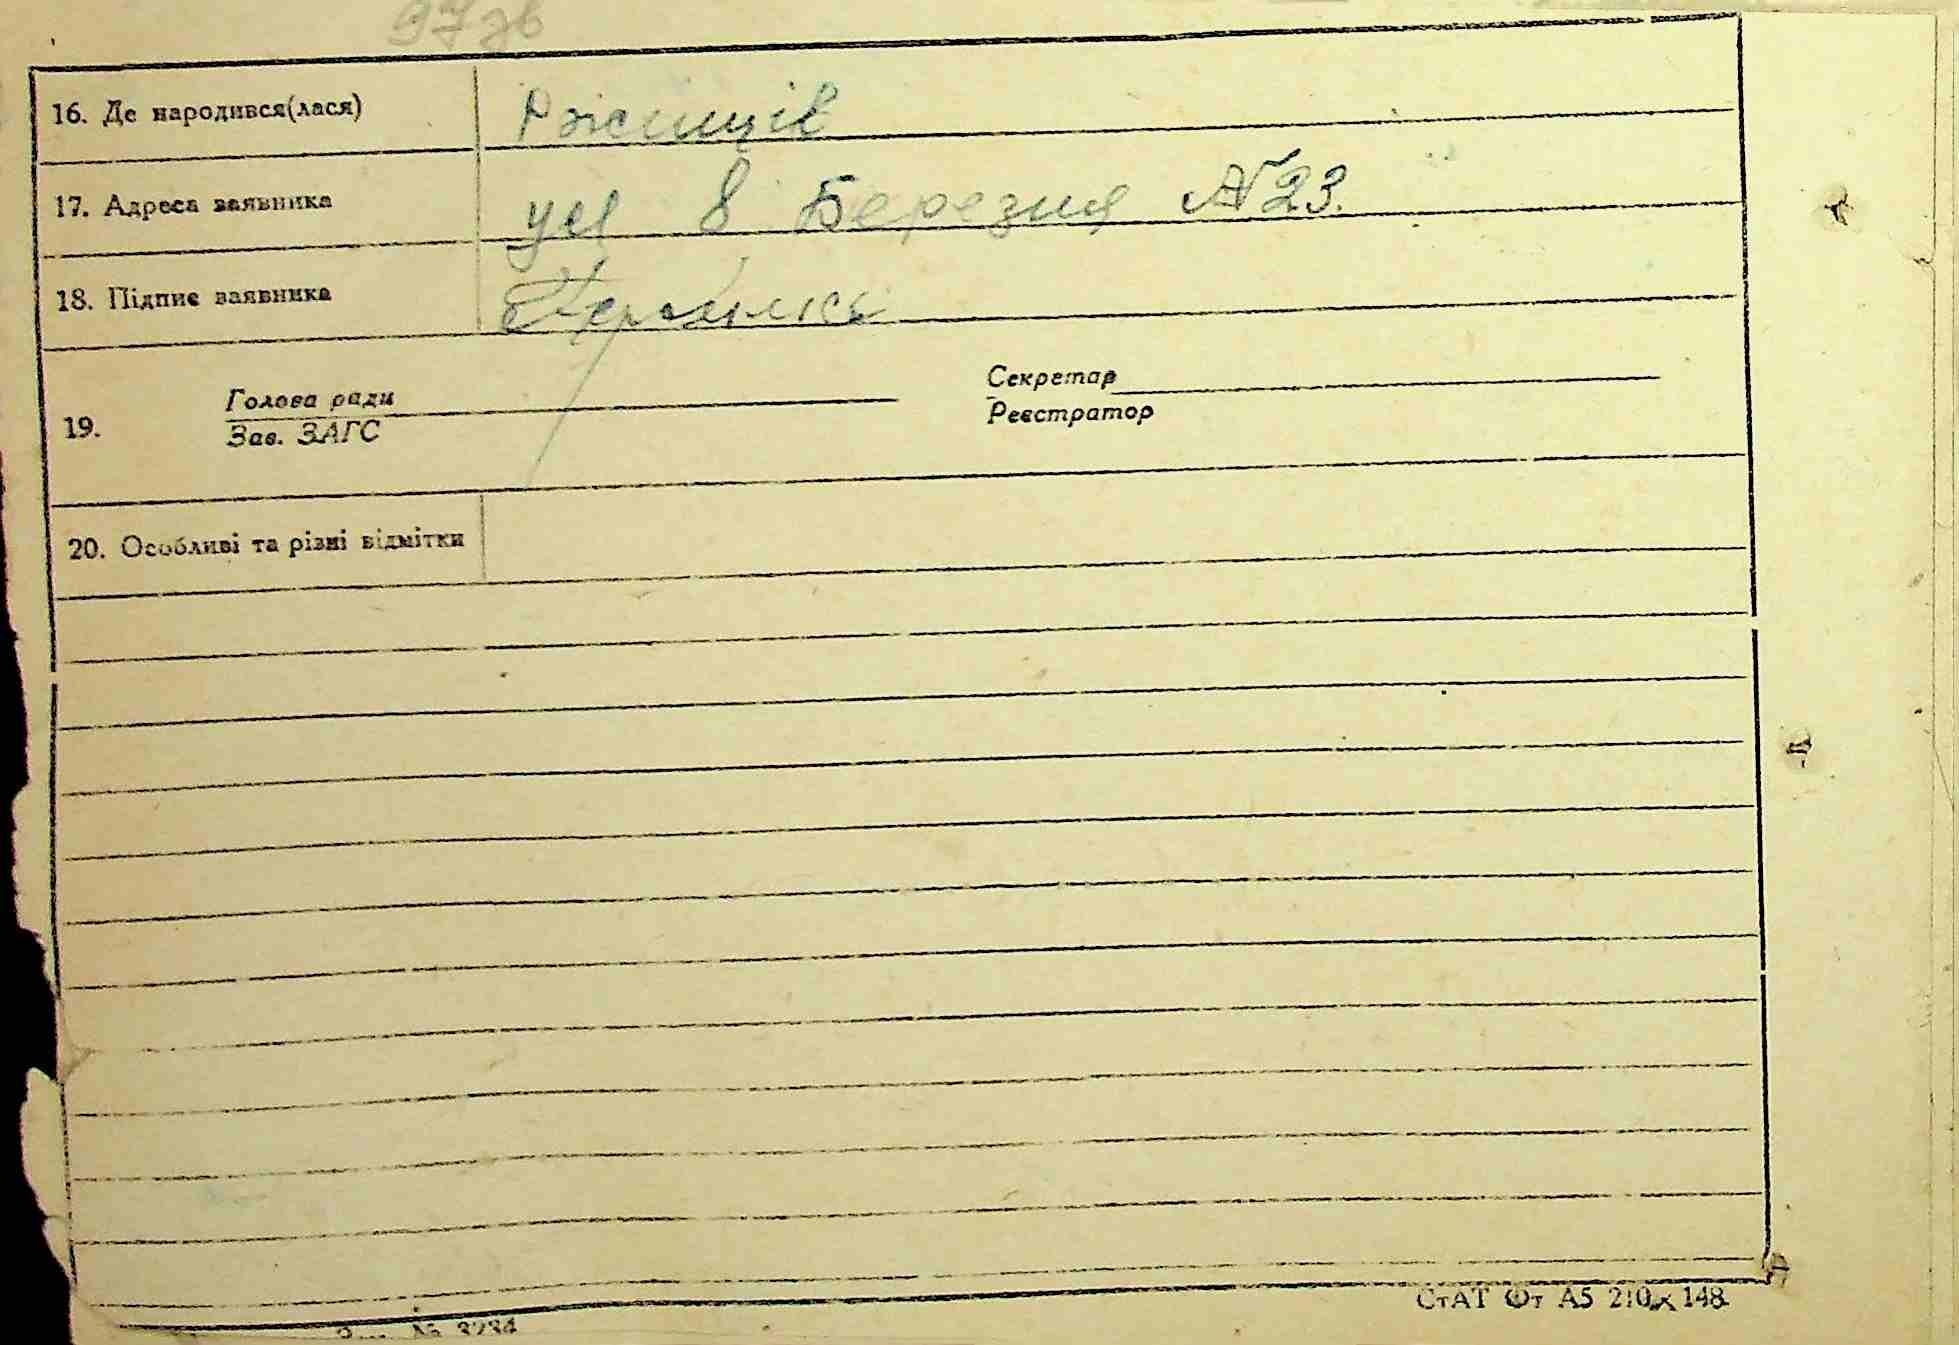 97 зв
16. Де народився(лася) Ржищів
17. Адреса заявника ул 8 Березня №23.
18. Підпис заявника
Голова ради Секретар
19. Зав. ЗАГС Реєстратор
20. Особливі та різні відмітки
СтАТ Фт А5 210 х 148
№ 3234